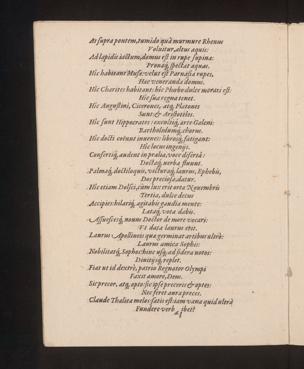 At supra pontem, tumido quà murmure Rhenus
Voluitur, altus aquis:
Ad lapidis iactum, domus est in rupe supina:
Pronaq́; spectat aquas.
Hic habitant Musæ: velut est Parnasia rupes,
Hæc veneranda domus.
Hic Charites habitant: hic Phœbo dulce morari est:
Hic sua regna tenet.
Hic Augustini, Cicerones, atq; Platones
Sunt: & Aristoteles.
Hic sunt Hippocrates: excultiq́; arte Galeni:
Bartholeumq́; chorus.
Hic docti coëunt iuuenes: librosq́; fatigant:
Hic locus ingenijs.
Conseriq́; audent in prælia, voce disertâ:
Doctaq́; verba fluunt.
Palmaq́; doctiloquis, victuraq́; laurus, Ephebis,
Dos preciosa, datur.
Hic etiam Dolsci, cùm lux erit orta Nouembris
Tertia, dulce decus
Accipies: hilariq́; agitabis gaudia mente:
Lataq́; vota dabis.
Assuescesq́; nouus Doctor de more vocari:
Et data laurus erit.
Laurus Apollineis quæ germinat artibus vltrò:
Laurus amica Sophis:
Nobilitatq́; Sophos hinc vsq; ad sidera notos:
Diuitijsq́; replet.
Fiat vt id dextrè, patrio Regnator Olympi
Faxit amore, Deus.
Sic precor, atq; opto: sic ipse preceris & optes:
Nec feret aura preces.
Claude Thalia melos: satis est: iam vana quid vltrà
Fundere verb ibet?